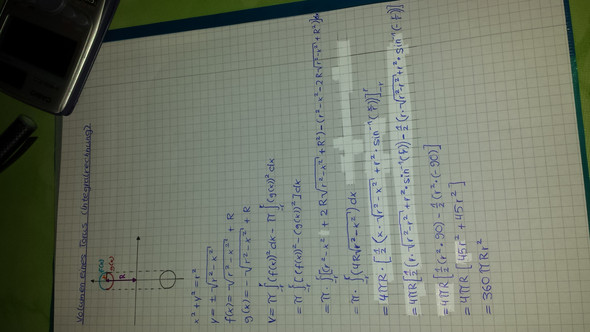 Volumen eines Torus (Integralrechnung)
f(x)
g(x)
R
x² + y² = r²
y = ± √r² - x²
f(x) = √r² - x² + R
g(x) = - √r² - x² + R
V = π ∫ (f(x))² dx - π ∫ (g(x))² dx
= π ∫ [(f(x))² - (g(x))²] dx
= π · ∫ [(r² - x² + 2R √r² - x² + R²) - (r² - x² - 2R √r² - x² + R²)] dx
= π · ∫ (4R √r² - x²) dx
= 4πR · [½ (x · √r² - x² + r² · sin⁻¹ (x/r))]
= 4πR [½ (r · √r² - r² + r² · sin⁻¹ (r/r)) - ½ (r · √r² - r² + r² · sin⁻¹ (-r/r))]
= 4πR [½ (r² · 90) - ½ (r² · (-90))]
= 4πR [45r² + 45r²]
= 360 πRr²